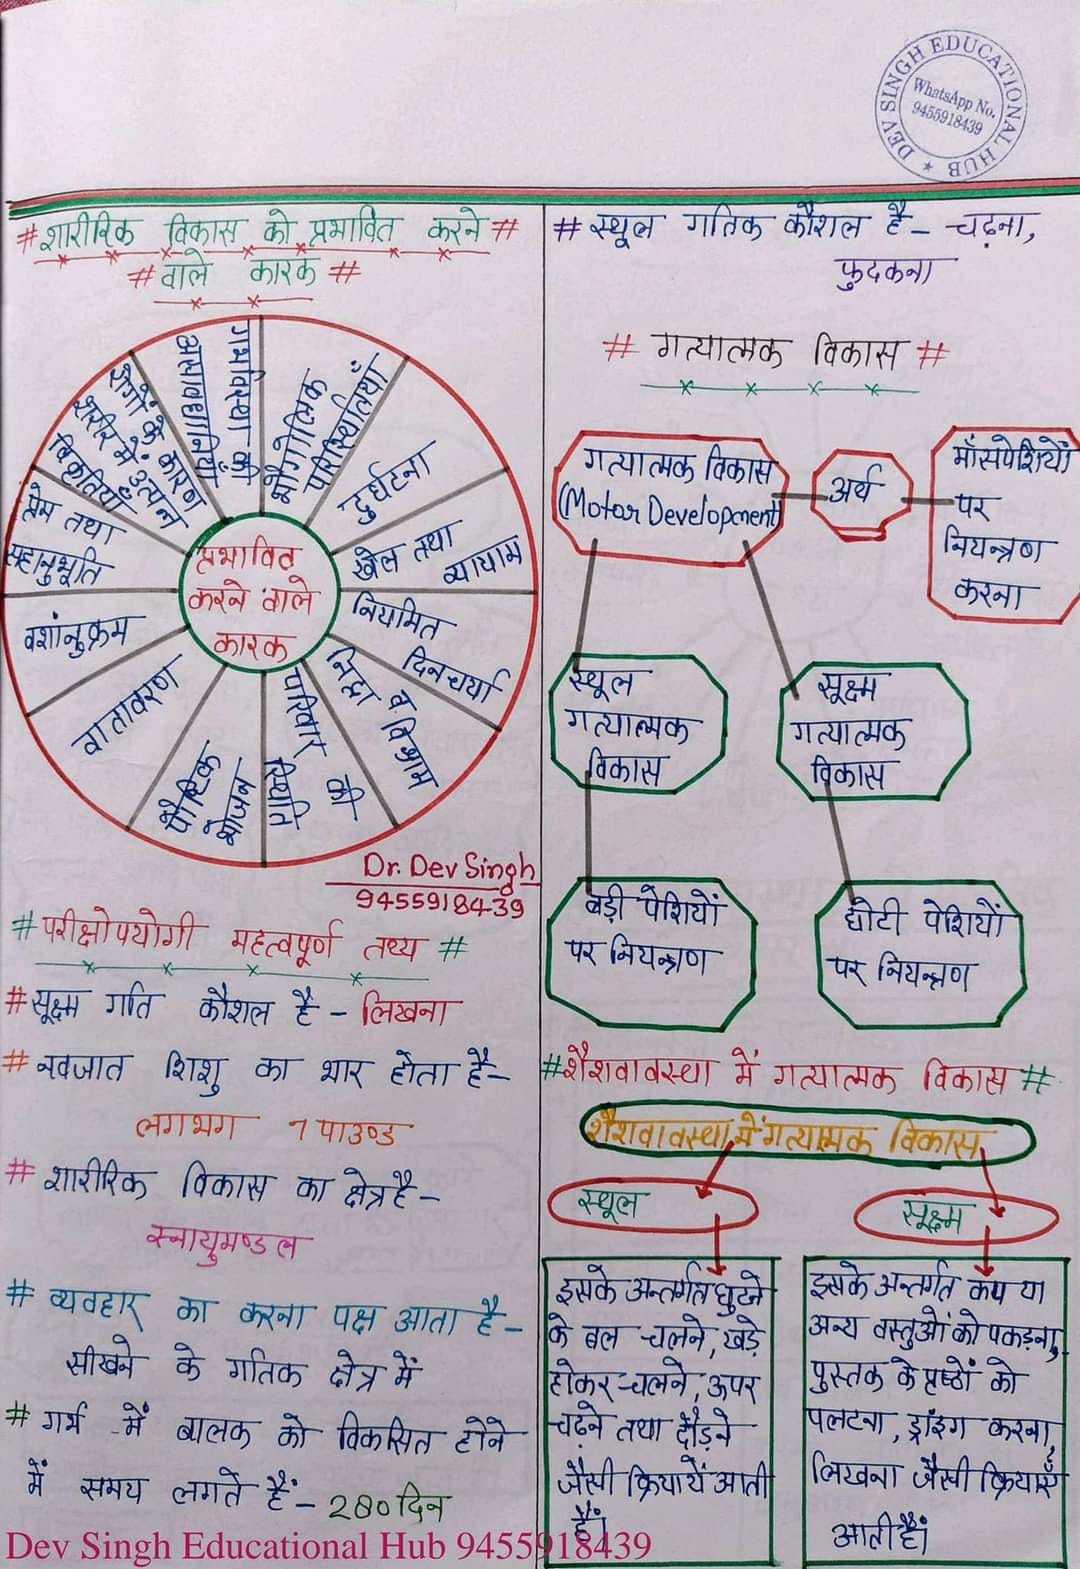 DEV SINGH EDUCATIONAL HUB
WhatsApp No.
9455918439
# शारीरिक विकास को प्रभावित करने #
# वाले कारक #
प्रभावित
करने वाले
कारक
भौगोलिक
परिस्थितियाँ
दुर्घटना
खेल तथा
व्यायाम
नियमित
दिनचर्या
निद्रा व विश्राम
परिवार की
स्थिति
पौष्टिक
भोजन
वातावरण
वशांनुक्रम
प्रेम तथा
सहानुभूति
रोगों के कारण
शरीर में उत्पन्न
विकृतियाँ
गर्भावस्था की
असावधानियाँ
Dr. Dev Singh
9455918439
# परीक्षोपयोगी महत्वपूर्ण तथ्य #
# सूक्ष्म गति कौशल है - लिखना
# नवजात शिशु का भार होता है-
लगभग 7 पाउण्ड
# शारीरिक विकास का क्षेत्र है -
स्नायुमण्डल
# व्यवहार का करना पक्ष आता है -
सीखने के गतिक क्षेत्र में
# गर्भ में बालक को विकसित होने
में समय लगते हैं - 280 दिन
# स्थूल गतिक कौशल है - चढ़ना,
फुदकना
# गत्यात्मक विकास #
गत्यात्मक विकास
(Motor Development)
अर्थ
माँसपेशियों
पर
नियन्त्रण
करना
स्थूल
गत्यात्मक
विकास
सूक्ष्म
गत्यात्मक
विकास
बड़ी पेशियों
पर नियन्त्रण
छोटी पेशियों
पर नियन्त्रण
# शैशवावस्था में गत्यात्मक विकास #
शैशवावस्था में गत्यात्मक विकास
स्थूल
सूक्ष्म
इसके अन्तर्गत घुटने
के बल चलने, खड़े
होकर चलने, ऊपर
चढ़ने तथा दौड़ने
जैसी क्रियायें आती
हैं।
इसके अन्तर्गत कप या
अन्य वस्तुओं को पकड़ना,
पुस्तक के पृष्ठों को
पलटना, ड्रॉइंग करना,
लिखना जैसी क्रियाएँ
आती हैं।
Dev Singh Educational Hub 9455918439